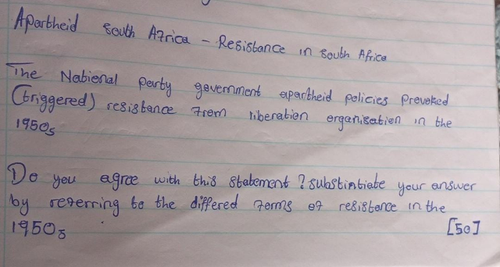 Apartheid South Africa - Resistance in South Africa
The National Party government apartheid policies provoked
(triggered) resistance from liberation organisation in the
1950s
Do you agree with this statement? substintiate your answer
by referring to the differed forms of resistance in the
1950s [50]